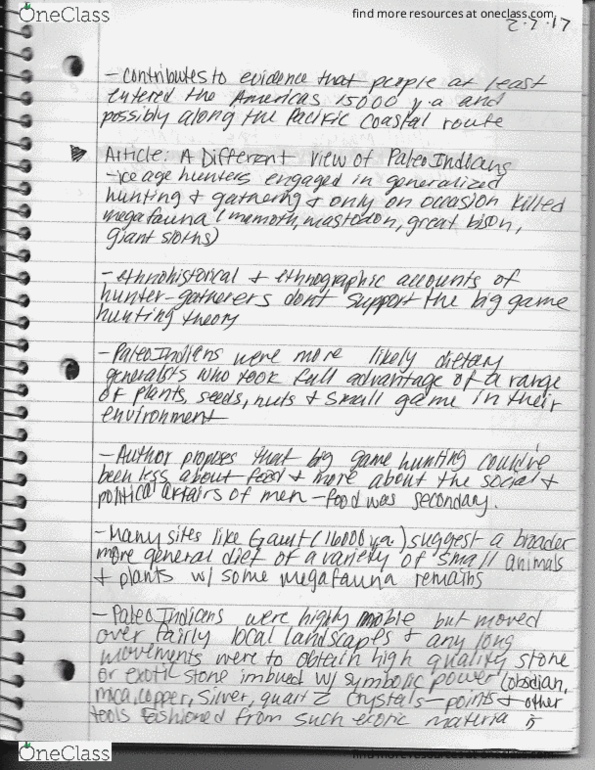 OneClass
find more resources at oneclass.com
2.2.17
- Contributes to evidence that people at least
entered the Americas 15000 y.a and
possibly along the Pacific Coastal route
Article: A Different View of PaleoIndians
- ice age hunters engaged in generalized
hunting + gathering + only on occasion killed
megafauna (mamoth, mastodon, great bison,
giant sloths)
- ethnohistorical + ethnographic accounts of
hunter-gatherers dont support the big game
hunting theory
- PaleoIndians were more likely dietary
generalists who took full advantage of a range
of plants, seeds, nuts + small game in their
environment
- Author proposes that big game hunting could've
been less about food + more about the social +
political affairs of men - food was secondary.
- Many sites like Gault (16000 y.a) suggest a broader
more general diet of a variety of small animals
+ plants w/ some megafauna remains
- PaleoIndians were highly mobile but moved
over fairly local landscapes + any long
movements were to obtain high quality stone
or exotic stone imbued w/ symbolic power (obsdian,
mica, copper, silver, quartz crystals - points + other
tools fashioned from such exotic materia
OneClass
find more resources at oneclass.com